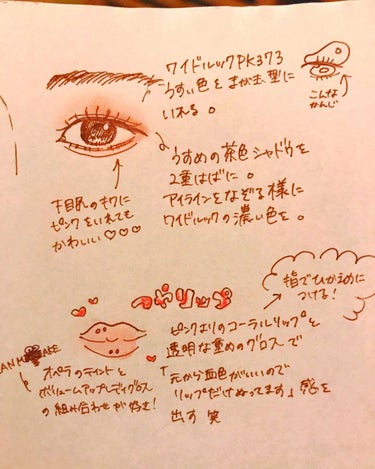 ワイドルックPK373
うすい色をまがたま型に
いれる。
こんな
かんじ
うすめの茶色シャドウを
2重はばに。
アイラインをなぞる様に
ワイドルックの濃い色を。
下目尻のキワに
ピンクをいれても
かわいい♡♡♡
つやリップ
指でひかえめに
つける!
ピンクよりのコーラルリップと
透明な重めのグロスで
「元から血色がいいので
リップだけぬってます」感を
出す 笑
オペラのティントと
ボリュームアップレディグロス
の組み合わせが好き!